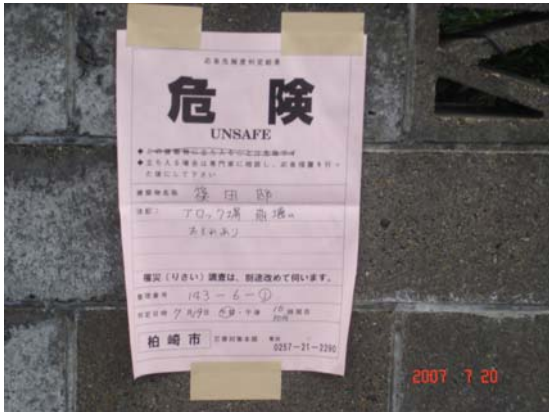 応急危険度判定結果
危険
UNSAFE
◆この建築物に立ち入ることは危険です
◆立ち入る場合は専門家に相談し、応急措置を行っ
た後にして下さい
建築物名称 篠田邸
注記: ブロック塀 崩壊の
おそれあり
罹災(りさい)調査は、別途改めて伺います。
整理番号 143-6-①
判定日時 7月19日 午前・午後 10時
柏崎市 災害対策本部 電話
0257-21-2290
2007 7 20